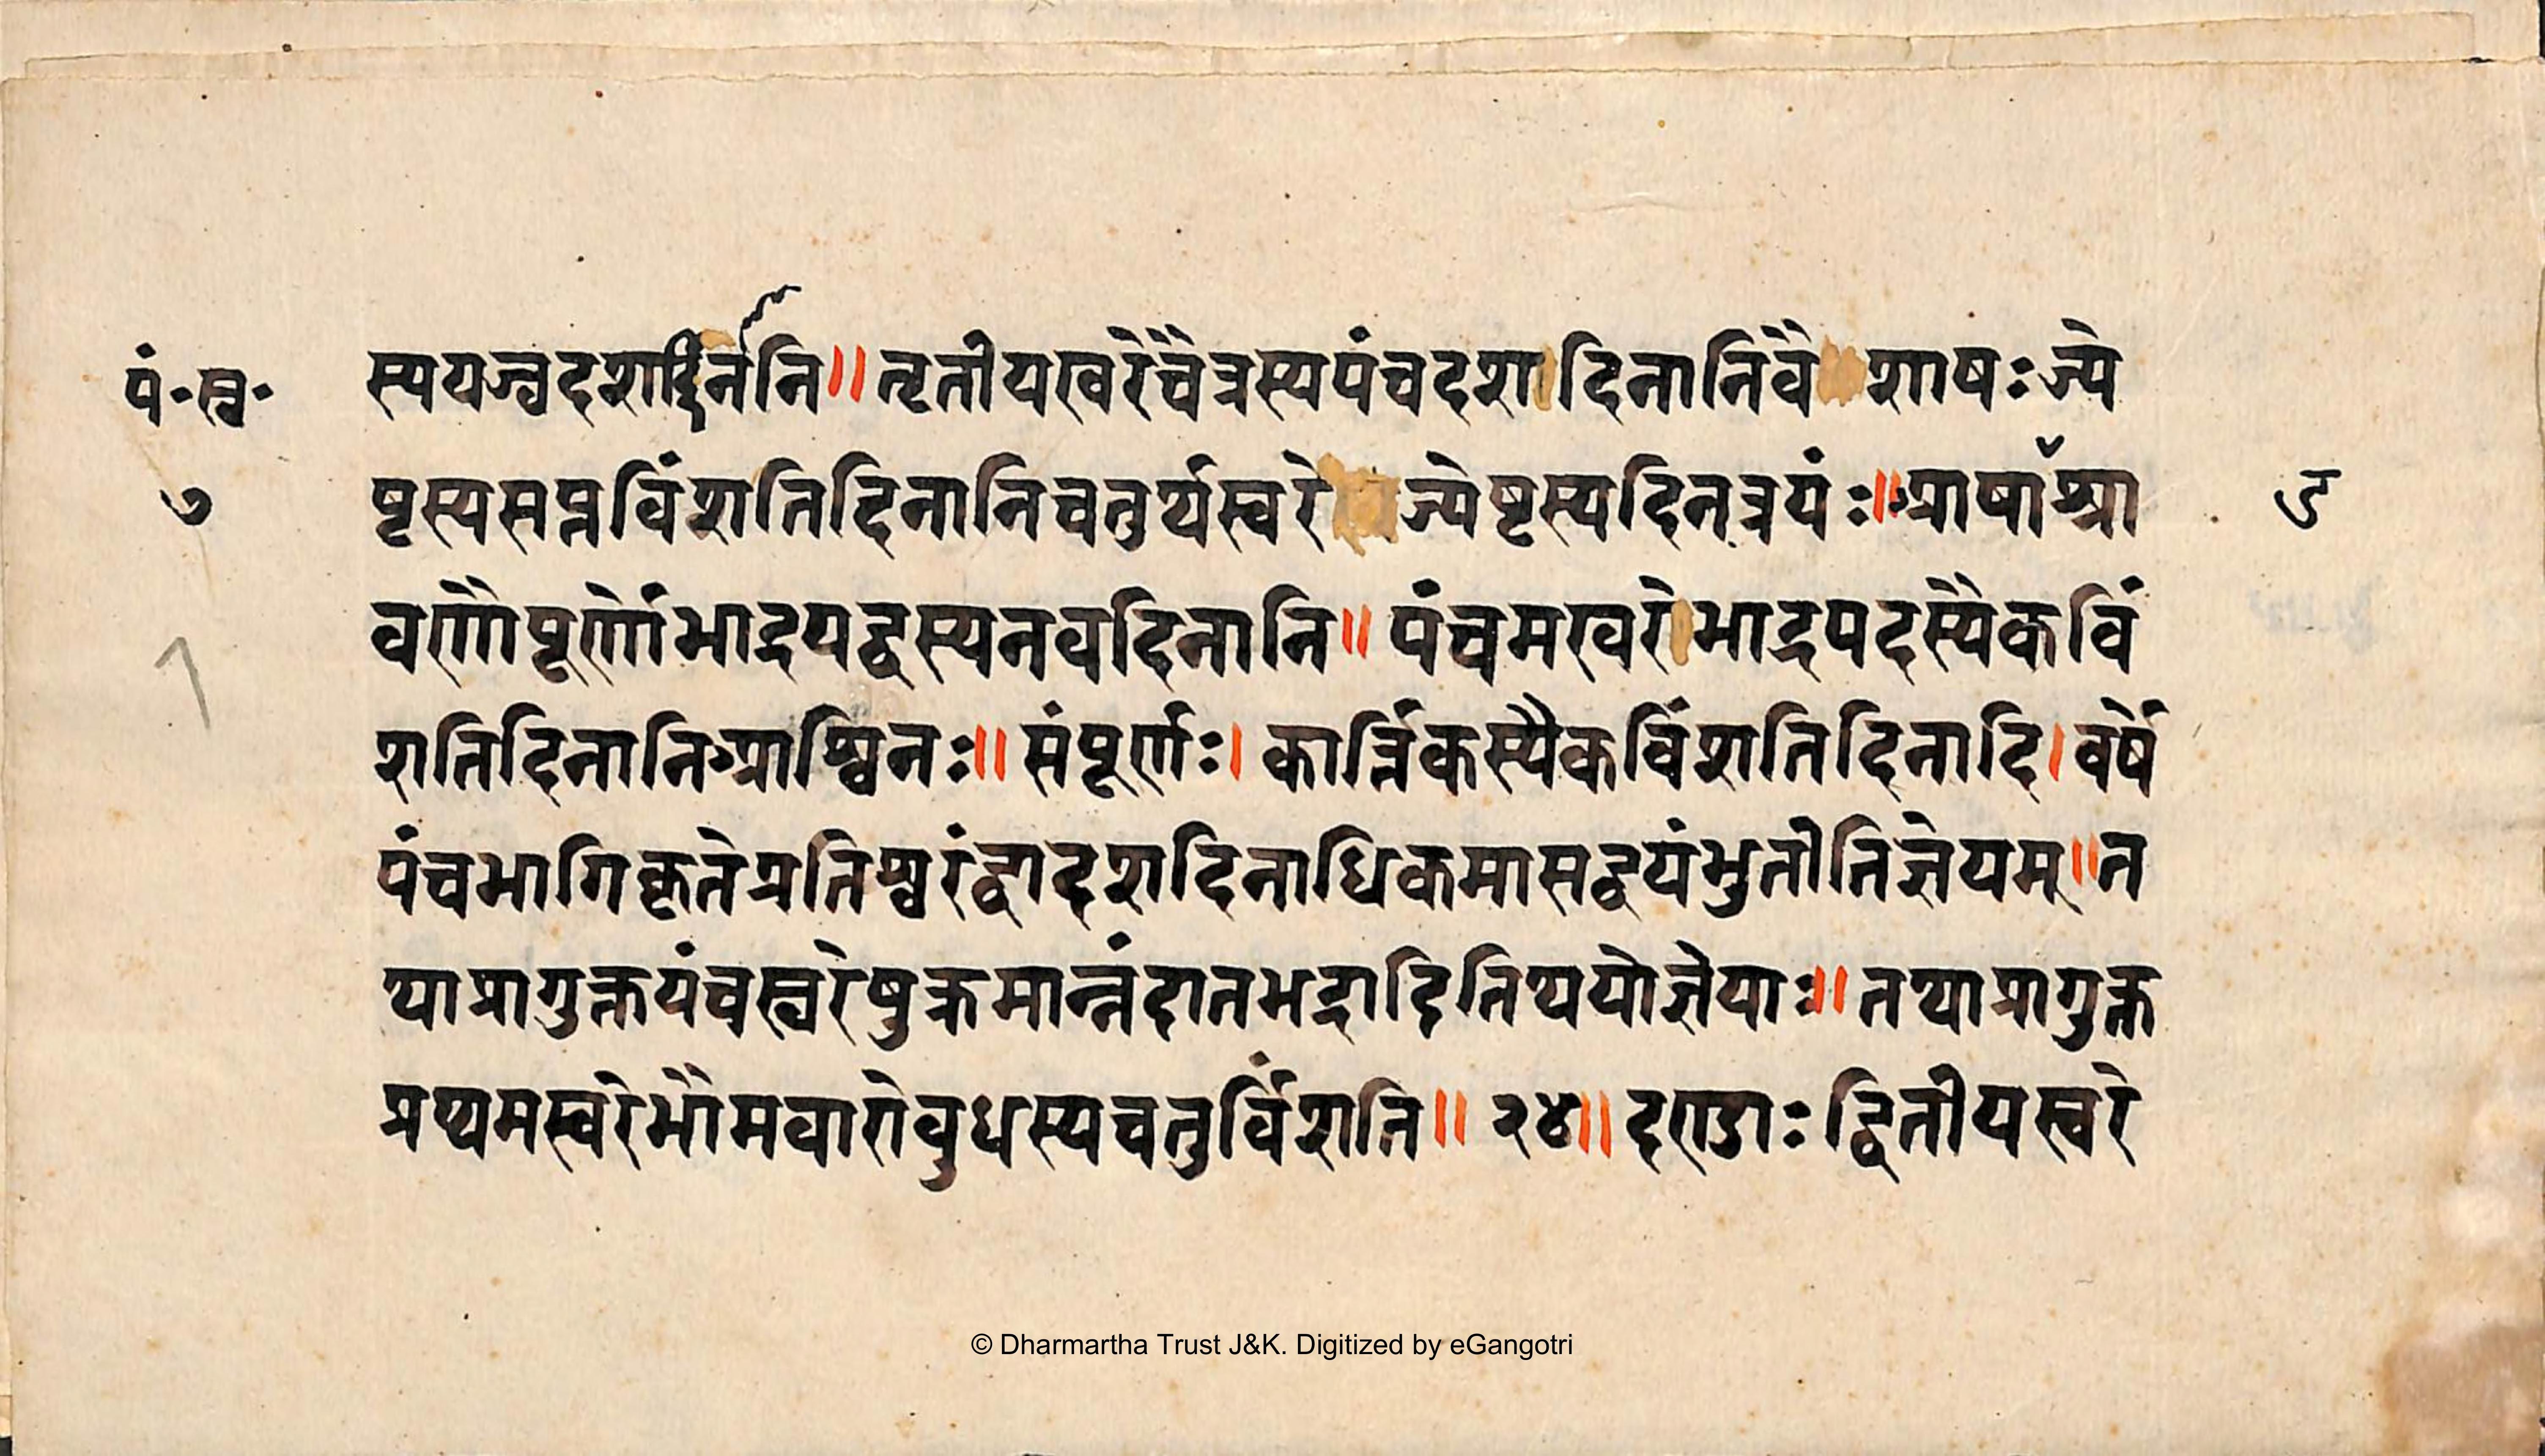 पं॰स्व॰
७
स्ययञ्चदशदिनानि॥ तृतीयस्वरेचैत्रस्यपंचदशदिनानिवैशाषःज्ये
ष्टस्यसप्तविंशतिदिनानिचतुर्थस्वरे ज्येष्टस्यदिनत्रयंः॥आषाढश्रा
वणौपूर्णोभाद्रयद्वस्यनवदिनानि॥ पंचमस्वरेभाद्रपदस्यैकविं
शतिदिनानिआश्विनः॥ संपूर्णः। कार्त्तिकस्यैकविंशतिदिनादि। वर्षे
पंचभागिकृतेप्रतिश्वरंद्वादशदिनाधिकमासद्वयंभुतीतिज्ञेयम्॥त
थाप्रागुक्तयंचस्वरेषुक्रमान्नंदातभद्रादितिथयोज्ञेयाः॥ तथाप्रागुक्त
प्रथमस्वरेभौमवारोवुधस्यचतुर्विंशति॥ २४॥ दण्डाः द्वितीयस्वरे
© Dharmartha Trust J&K. Digitized by eGangotri